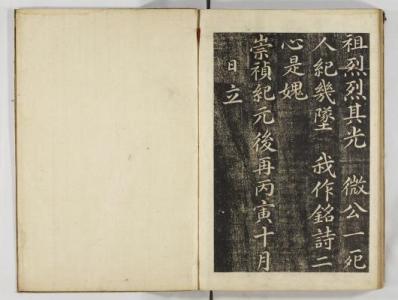 祖烈烈其光 微公一死
人紀幾墜 我作銘詩二
心是媿
崇禎紀元後再丙寅十月
日立